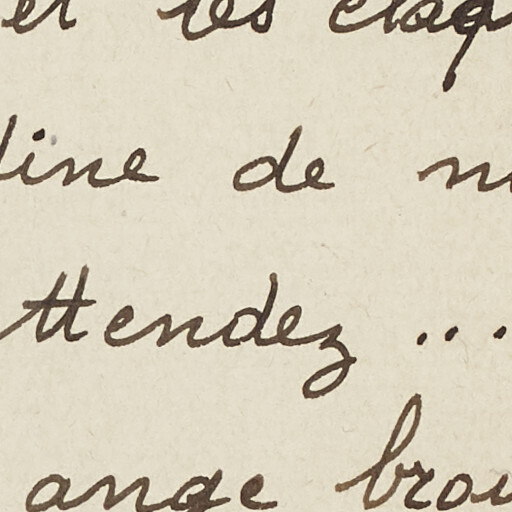 et les claq
dine de n
ttendez ...
ange brou